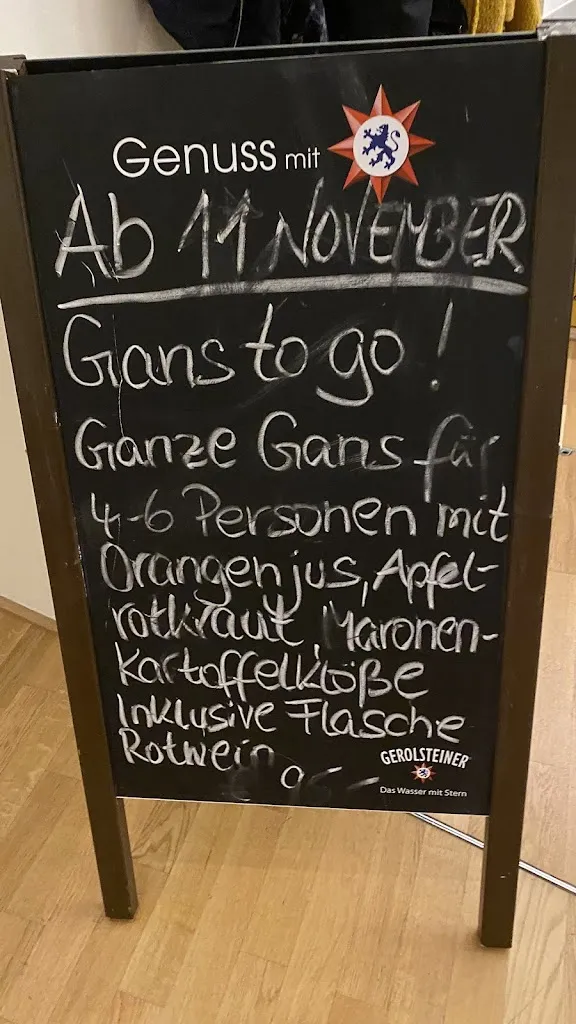 Genuss mit
Ab 11 NOVEMBER
Gans to go!
Ganze Gans für
4-6 Personen mit
Orangenjus, Apfel-
rotkraut, Maronen-
Kartoffelklöße
Inklusive Flasche
Rotwein
GEROLSTEINER
Das Wasser mit Stern